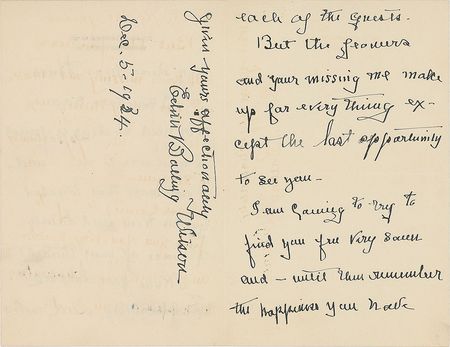 each of the guests.
But the flowers
and your missing me make
up for everything ex-
cept the last opportunity
to see you -
I am going to try to
find you free very soon
and - until then remember
the happiness you have
given yours affectionately
Edith Bolling Wilson -
Dec. 5 - 1924.